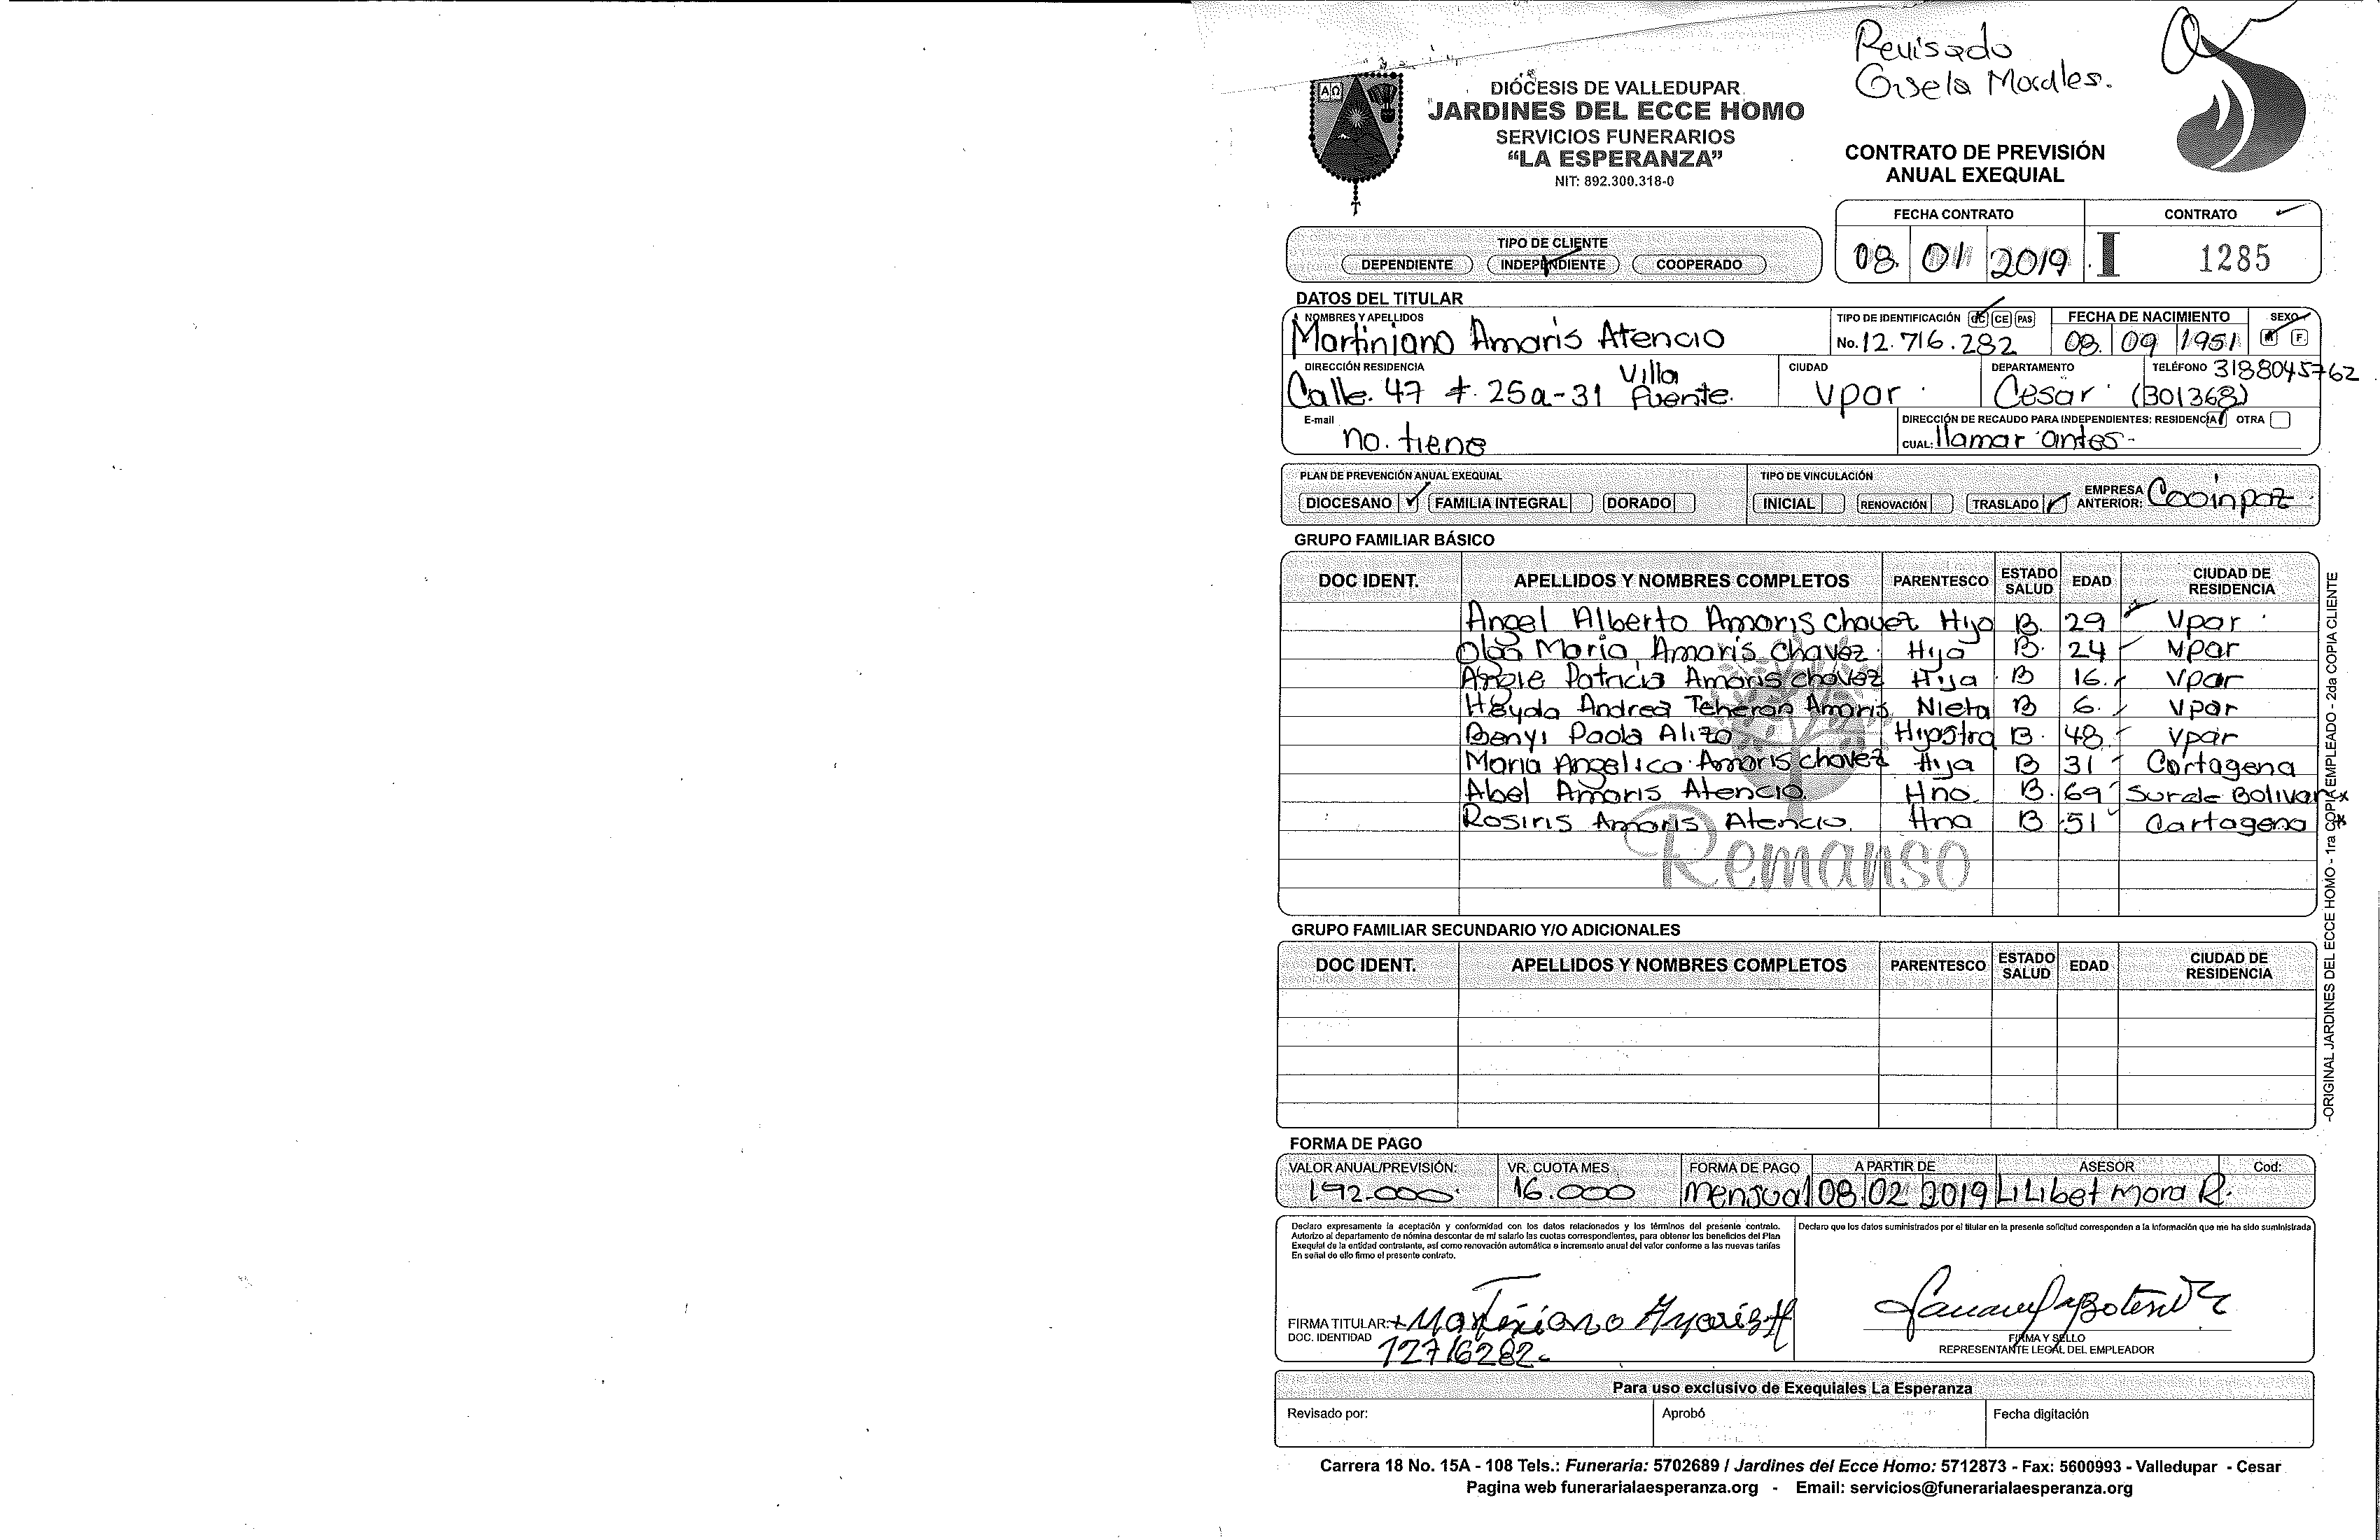 Revisado
Gisela Morales.
DIÓCESIS DE VALLEDUPAR
JARDINES DEL ECCE HOMO
SERVICIOS FUNERARIOS
“LA ESPERANZA”
NIT: 892.300.318-0
CONTRATO DE PREVISIÓN
ANUAL EXEQUIAL
FECHA CONTRATO CONTRATO
08. 01 2019 I 1285
TIPO DE CLIENTE
DEPENDIENTE INDEPENDIENTE COOPERADO
DATOS DEL TITULAR
NOMBRES Y APELLIDOS TIPO DE IDENTIFICACIÓN CC CE PAS FECHA DE NACIMIENTO SEXO
Martiniano Amaris Atencio No. 12.716.282 08. 09 1951 M F
DIRECCIÓN RESIDENCIA CIUDAD DEPARTAMENTO TELÉFONO 3188045762
Calle. 47 #. 25a-31 Villa Fuente. Vpar. Cesar (301368)
E-mail no. tiene
DIRECCIÓN DE RECAUDO PARA INDEPENDIENTES: RESIDENCIA OTRA
CUAL: llamar antes-
PLAN DE PREVENCIÓN ANUAL EXEQUIAL TIPO DE VINCULACIÓN
DIOCESANO ✓ FAMILIA INTEGRAL DORADO INICIAL RENOVACIÓN TRASLADO ✓ EMPRESA ANTERIOR: Cooinpaz
GRUPO FAMILIAR BÁSICO
DOC IDENT. APELLIDOS Y NOMBRES COMPLETOS PARENTESCO ESTADO SALUD EDAD CIUDAD DE RESIDENCIA
Angel Alberto Amaris Chavez Hijo B. 29 Vpar
Olga Maria Amaris Chavez Hija B. 24 Vpar
Angie Patricia Amaris Chavez Hija B 16. Vpar
Heyda Andrea Teheran Amaris Nieta B 6. Vpar
Paola Alizo Hijastra B. 48 Vpar
Maria Angelica Amaris Chavez Hija B 31 Cartagena
Abel Amaris Atencio. Hno. B. 69 Sur de Bolivar
Rosiris Amaris Atencio. Hna B 51 Cartagena
Remanso
GRUPO FAMILIAR SECUNDARIO Y/O ADICIONALES
DOC IDENT. APELLIDOS Y NOMBRES COMPLETOS PARENTESCO ESTADO SALUD EDAD CIUDAD DE RESIDENCIA
-ORIGINAL JARDINES DEL ECCE HOMO - 1ra COPIA EMPLEADO - 2da COPIA CLIENTE
FORMA DE PAGO
VALOR ANUAL/PREVISIÓN: VR. CUOTA MES FORMA DE PAGO A PARTIR DE ASESOR Cod:
192.000 16.000 Mensual 08.02 2019 Lilibet Mora R.
Declaro expresamente la aceptación y conformidad con los datos relacionados y los términos del presente contrato.
Autorizo al departamento de nómina descontar de mi salario las cuotas correspondientes, para obtener los beneficios del Plan
Exequial de la entidad contratante, así como renovación automática e incremento anual del valor conforme a las nuevas tarifas
En señal de ello firmo el presente contrato.
Declaro que los datos suministrados por el titular en la presente solicitud corresponden a la información que me ha sido suministrada
FIRMA TITULAR: Martiniano Amaris A
DOC. IDENTIDAD 12716282-
FIRMA Y SELLO
REPRESENTANTE LEGAL DEL EMPLEADOR
Para uso exclusivo de Exequiales La Esperanza
Revisado por: Aprobó Fecha digitación
Carrera 18 No. 15A - 108 Tels.: Funeraria: 5702689 / Jardines del Ecce Homo: 5712873 - Fax: 5600993 - Valledupar - Cesar
Pagina web funerarialaesperanza.org - Email: servicios@funerarialaesperanza.org